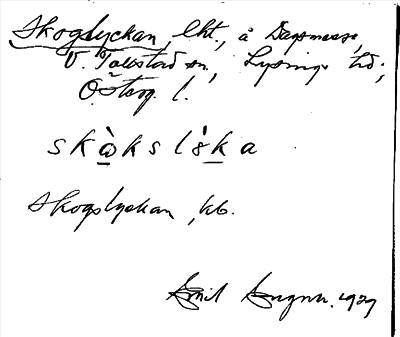 Skogslyckan, lht., å Dagsmosse,
V. Tollstad sn, Lysings hd;
Östrg. l.
skὼksl8̀ka
Skogslyckan, kb.
Emil 1929